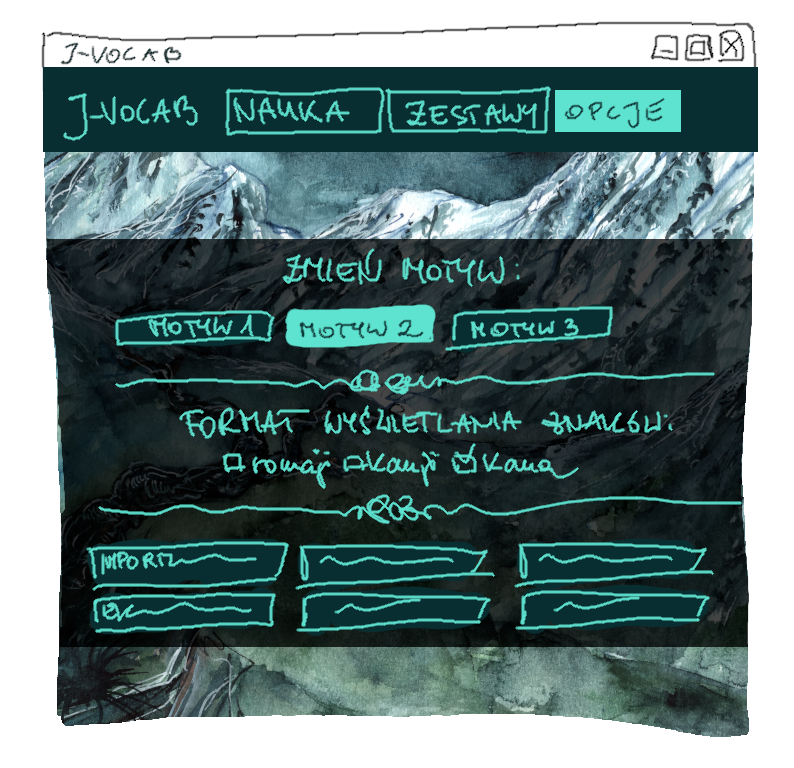 J-VOCAB
J-VOCAB NAUKA ZESTAWY OPCJE
ZMIEŃ MOTYW:
MOTYW 1 MOTYW 2 MOTYW 3
FORMAT WYŚWIETLANIA ZNAKÓW:
romaji kanji kana